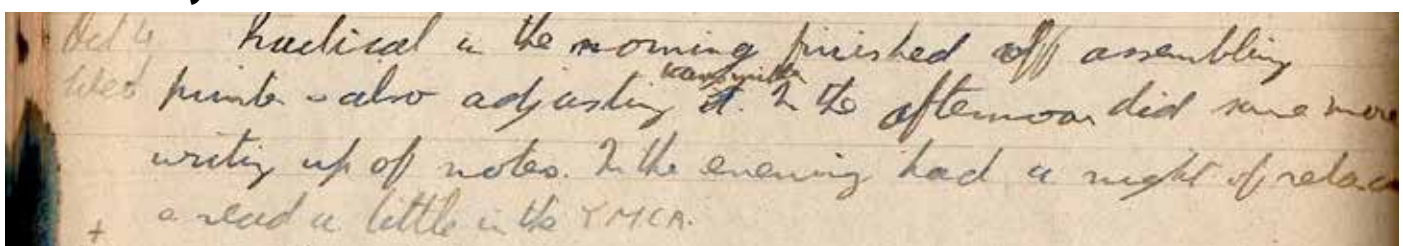 Oct 4 Practical in the morning finished off assembling
Wed printer & also adjusting it. In the afternoon did some more
writing up of notes. In the evening had a night of relax
& read a little in the YMCA.
+